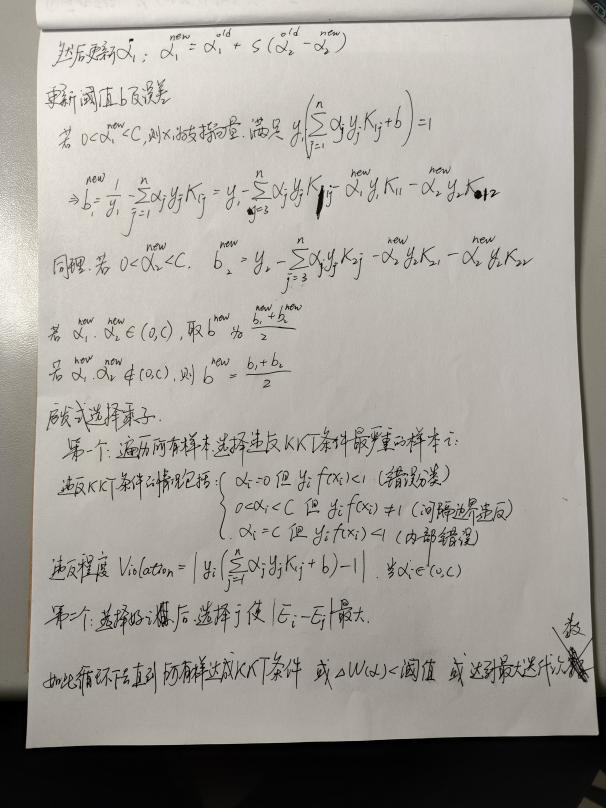 然后更新α₁: α₁^new = α₁^old + S(α₂^old − α₂^new)
更新阈值b及误差
若 0<α₁^new<C, 则x₁为支持向量. 满足 y₁(∑_{j=1}^n αⱼyⱼK₁ⱼ+b)=1
⇒ b₁^new = 1/y₁ − ∑_{j=1}^n αⱼyⱼK₁ⱼ = y₁ − ∑_{j=3}^n αⱼyⱼK₁ⱼ − α₁^new y₁K₁₁ − α₂^new y₂K₁₂
同理.若 0<α₂^new<C. b₂^new = y₂ − ∑_{j=3}^n αⱼyⱼK₂ⱼ − α₂^new y₂K₂₁ − α₂^new y₂K₂₂
若 α₁^new. α₂^new ∈ (0,C), 取 b^new 为 (b₁^new+b₂^new)/2
若 α₁^new. α₂^new ∉ (0,C), 则 b^new = (b₁+b₂)/2
启发式选择乘子.
第一个: 遍历所有样本.选择违反KKT条件最严重的样本i:
违反KKT条件的情况包括: { αᵢ=0 但 yᵢf(xᵢ)<1 (错误分类)
0<αᵢ<C 但 yᵢf(xᵢ)≠1 (间隔边界违反)
αᵢ=C 但 yᵢf(xᵢ)<1 (内部错误)
违反程度 Violation = |yᵢ(∑_{j=1}^n αⱼyⱼKᵢⱼ+b)−1|. 当αᵢ∈(0,C)
第二个: 选择好i后.选择j使|Eᵢ−Eⱼ|最大.
如此循环下去直到所有样达成KKT条件 或 ΔW(α)<阈值 或达到最大迭代次数